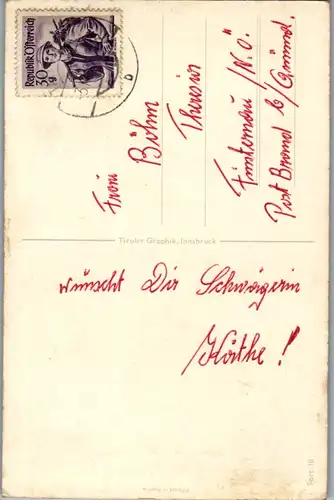 Republik Österreich
30 g
Frau
Böhm
Theresia
Finsternau / N.Ö.
Post Brand b/ Gmünd.
Tiroler Graphik, Innsbruck
wünscht Dir Schwägerin
Käthe!